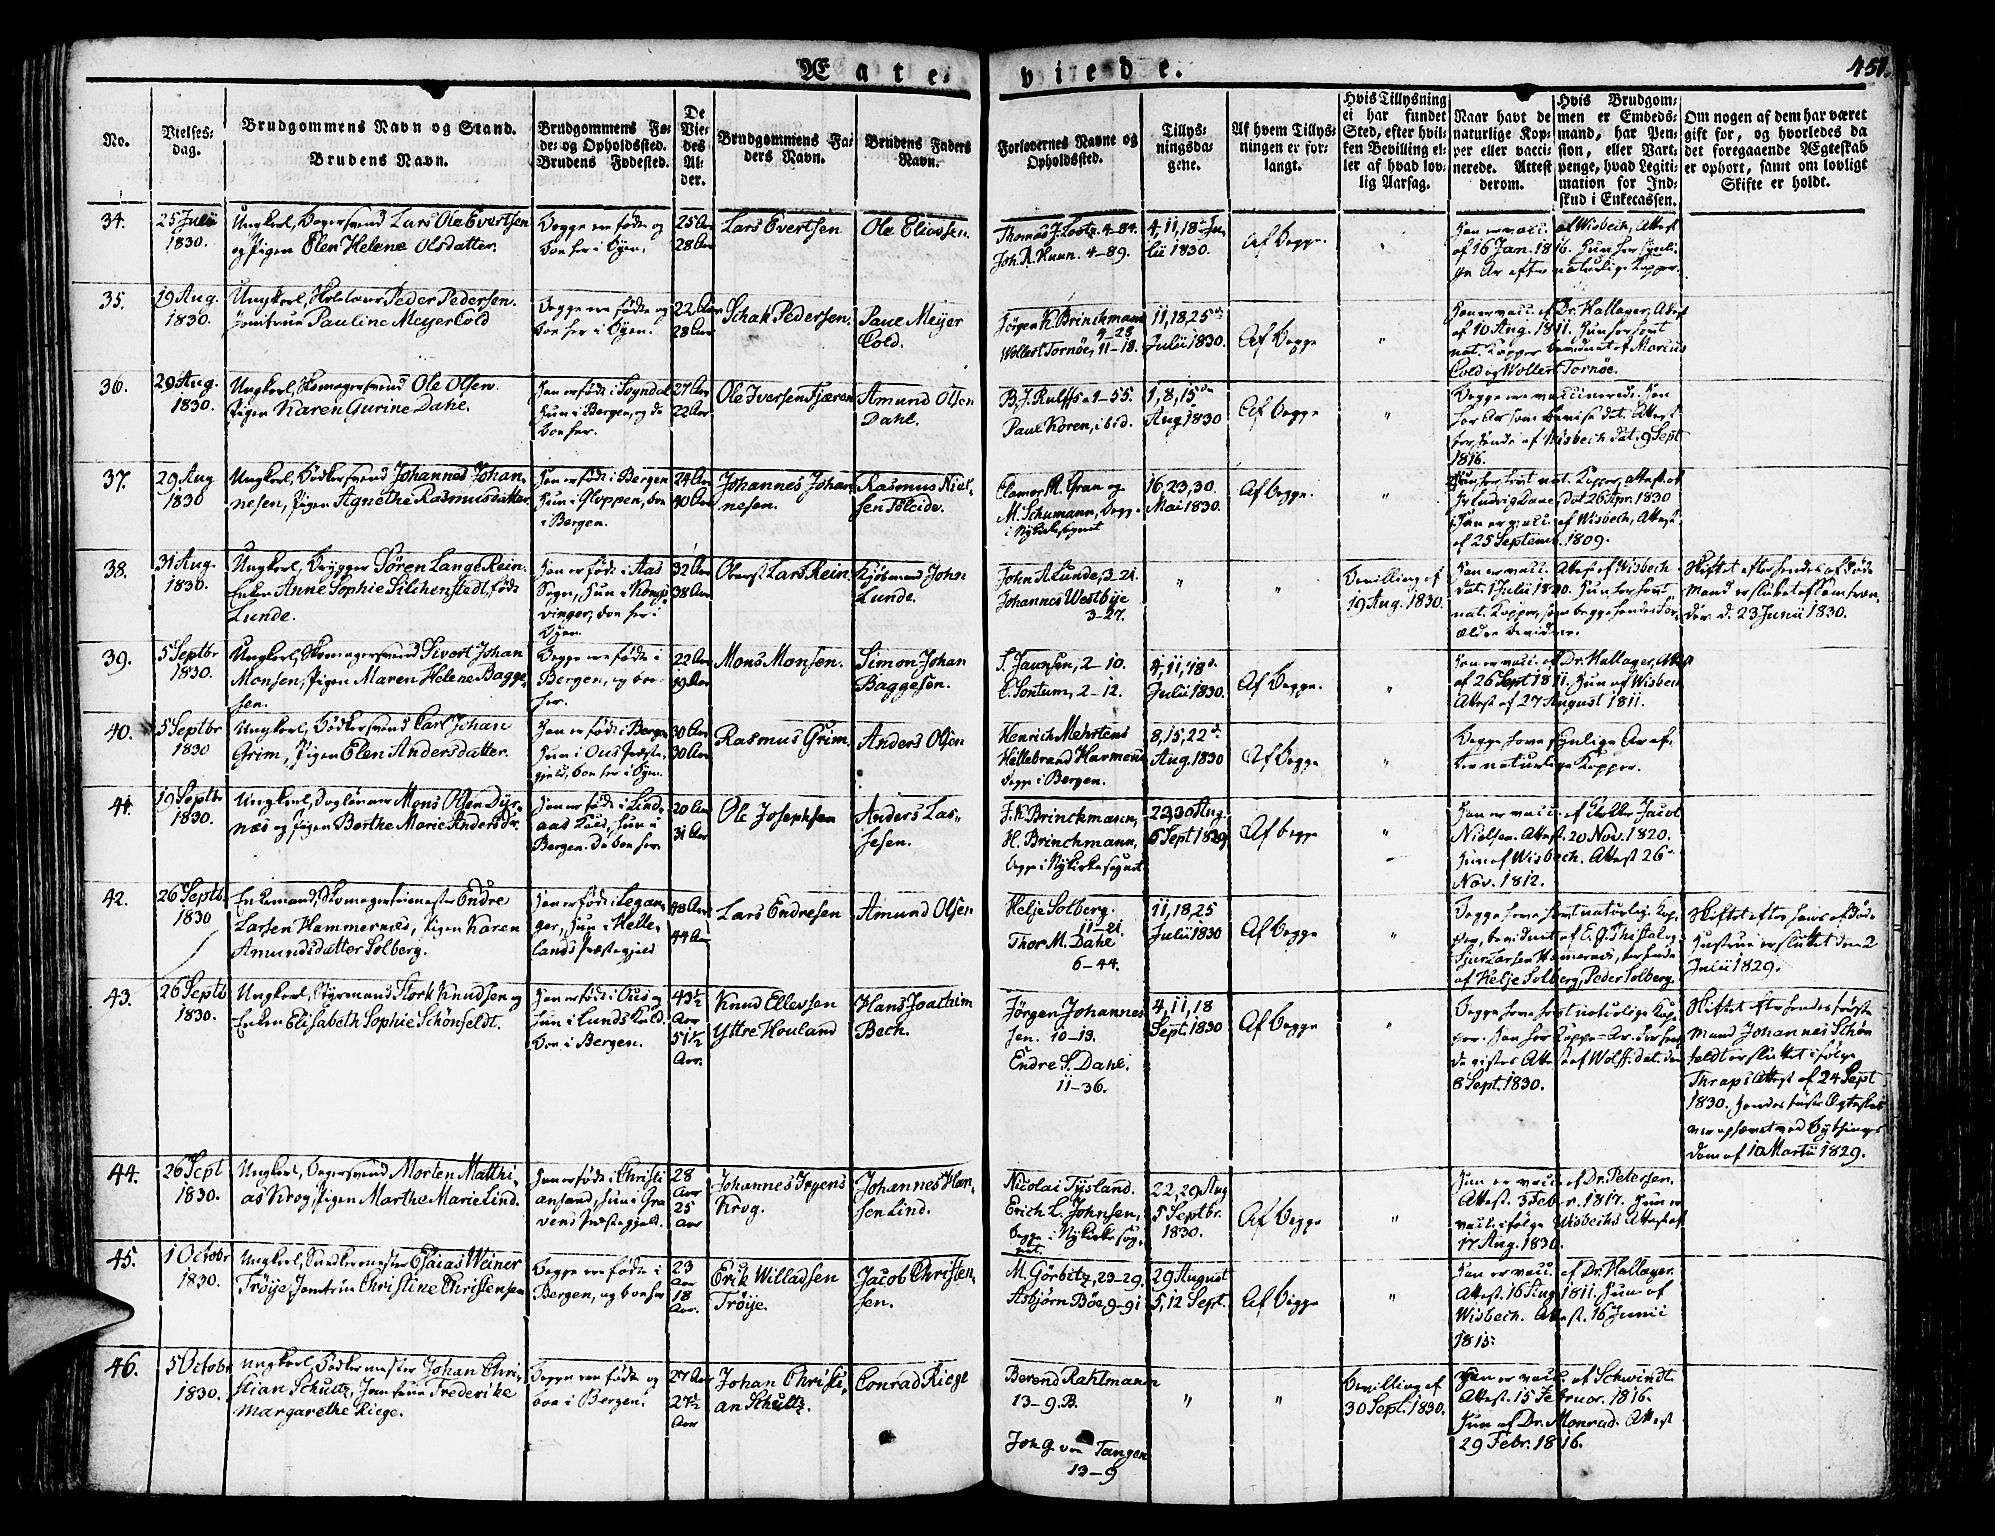 Ægteviede.
451.
No.
Vielses-
dag.
Brudgommens Navn og Stand.
Brudens Navn.
Brudgommens Fø-
de- og Opholdssted.
Brudens Fødested.
De
Vie-
des
Al-
der.
Brudgommens Fa-
ders Navn.
Brudens Faders
Navn.
Forlovernes Navne og
Opholdssted.
Tillys-
ningsda-
gene.
Af hvem Tillys-
ningen er for-
langt.
Hvis Tillysning
ei har fundet
Sted, efter hvil-
ken Bevilling el-
ler af hvad lov-
lig Aarsag.
Naar havt de
naturlige Kop-
per eller vacci-
nerede. Attest
derom.
Hvis Brudgom-
men er Embeds-
mand, har Pen-
sion, eller Vart-
penge, hvad Legiti-
mation for Ind-
skud i Enkecassen.
Om nogen af dem har været
gift før, og hvorledes da
det foregaaende Ægteskab
er ophørt, samt om lovligt
Skifte er holdt.
34.
25 Julii
1830.
Ungkarl, Bagersvend Lars Ole Evertsen
og Pigen Elen Helene Olsdatter.
Begge ere fødte og
boe her i Byen.
25 Aar
28 Aar
Lars Evertsen
Ole Eliassen
Thomas J. Lootz. 4-84.
Joh. R. Kuun. 4-89.
4, 11, 18de Ju-
lii 1830.
Af Begge.
"
Han er vacc. af Wisbech, Attest
af 16 Jan. 1816. Hun har synli-
ge Ar efter naturlige Kopper.
35.
19 Aug.
1830.
Ungkarl, Peder Pedersen.
Jomfrue Pauline Meyer Cold
Begge ere fødte og
boe her i Byen.
22 Aar
28 Aar
Schak Pedersen.
Paul Meyer
Cold.
Jörgen K. Brinckmann
4-28
Wollert Tornøe, 11-18.
11, 18, 25de
Julii 1830.
Af Begge
"
Han er vacc. af Dr. Hallager, Attest
af 10 Aug. 1811. Hun har havt
nat. Kopper bevidnet af Marcus
Cold og Wollert Tornøe.
36.
29 Aug.
1830.
Ungkarl, Skomagersvend Ole Olsen
Pigen Karen Gurine Dahl.
Han er født i Sogndal
hun i Bergen, og de
boe her.
27 Aar
22 Aar
Ole Iversen Fjæren
Amund Olsen
Dahl.
B. J. Rulffs 1-55.
Paul Koren, ibid.
1, 8, 15de
Aug 1830
Af begge
"
Begge ere vaccinerede. Han
har Ar som bevise det. Attest
for hende af Wisbech dat. 9 Sept
1816.
37.
29 Aug
1830
Ungkarl, Bødkersvend Johannes Johan-
nesen, Pigen Agnethe Rasmusdatter
Han er født i Bergen
hun i Gloppen, boe
i Bergen.
24 Aar
40 Aar
Johannes Johan
nesen.
Rasmus Niel-
sen
Clamer M. Gran og
M. Schumann, begge
i Nykirkesognet
16, 23, 30.
Mai 1830.
Af begge.
"
Hun har havt nat. Kopper, Attest af
dat 26 Apr. 1830
Han er vacc. af Wisbech, Attest
af 25 Septemb. 1809.
38.
31 Aug.
1830.
Ungkarl, Brygger Sören Lange Rein.
Enken Anne Sophie Silchenstedt, født
Lunde.
Han er født i Aas
Sogn, hun i Kongs-
vinger, boe her i
Byen.
32 Aar
38 Aar
Oberst Lars Rein
Kjøbmand John
Lunde.
John A. Lunde, 3-21.
Johannes Westbye
3-27.
"
"
Bevilling af
19 Aug. 1830.
Han er vacc. Attest af Wisbech
dat. 1 Julii 1820. Hun har havt
nat. Kopper, som begge hendes For-
ældre bevidne.
Skiftet efter hendes afdøde
Mand er sluttet af Samfræn-
der d. 23 Junii 1830.
39.
5 Septbr
1830.
Ungkarl, Skomagersvend Sivert Johan
Monsen, Pigen Maren Helene Bagge-
sen.
Begge ere fødte i
Bergen, og boe
her.
22 Aar
19 Aar
Mons Monsen.
Simon Johan
Baggesen.
S. Jaunsen, 2-10.
C. Sontum, 2-12.
4, 11, 18de
Julii 1830.
Af Begge.
"
Han er vacc. af Dr. Hallager, Attest
af 26 Sept 1811. Hun af Wisbech
Attest af 27 August 1811.
40.
5 Septbr
1830
Ungkarl, Bødkersvend Carl Johan
Grim, Pigen Elen Andersdatter.
Han er født i Bergen
hun i Ous Præste-
gjeld, boe her i Byen.
30 Aar
30 Aar
Rasmus Grim.
Anders Olsen
Henrich Mehrtens
Hillebrand Harmens
begge i Bergen.
8, 15, 22de
Aug. 1830
Af Begge
"
Begge have synlige Ar ef-
ter naturlige Kopper.
41.
19 Septbr
1830.
Ungkarl, Daglønner Mons Olsen Dyr-
næs og Pigen Berthe Marie Andersdr.
Han er født i Lind-
aas Kald, hun i
Bergen. De boe her.
20 Aar
31 Aar
Ole Josephsen
Anders Las-
sesen.
J. K. Brinckmann,
H. Brinckmann,
begge i Nykirkesognet
22, 30 Aug.
5 Sept 1830.
Af begge
"
Han er vacc. af Jacob
Nielsen. Attest. 20 Nov. 1820.
Hun af Wisbech. Attest 26
Nov. 1812.
42.
26 Septb.
1830
Enkemand, Skomagermester Endre
Larsen Hammernæs, Pigen Karen
Amundsdatter Solberg.
Han er født i Leegan-
ger, hun i Helle-
lands Præstegjeld
48 Aar
44 Aar
Lars Endresen
Amund Olsen
Helje Solberg.
11-21.
Thor M. Dahl
6-44.
11, 18, 25
Julii 1830
Af begge
"
Begge have havt naturlige Kop-
per, bevidnet af E. Q. Thistel og
Sjur Larsen Hamernæs, for hende
af Helje Solberg, Peder Solberg.
Skiftet efter hans afdøde
Hustrue er sluttet den 2
Julii 1829.
43.
26 Septb
1830.
Ungkarl, Styrmand Stork Knudsen og
Enken Elisabeth Sophie Schönfeldt.
Han er født i Ous og
hun i Lunds Kald.
boe i Bergen.
43½
Aar
51½
Aar.
Knud Ellevsen
Yttre Houland
Hans Joachim
Bech.
Jørgen Johannes-
sen. 10-13.
Endre S. Dahl.
11-36.
4, 11, 18
Sept. 1830
Af Begge
"
Begge have havt naturlige Kop-
per. Han har Koppe-Ar. For hen-
de vistes Attest af Wolff. dat. den
8 Sept. 1830.
Skiftet efter hendes første
Mand Johannes Schøn
feldt er sluttet i følge
Thraps Attest af 24 Sept
1830. Hendes sidste Ægteskab
var ophævet ved Bythings
dom af 10 Martii 1829.
44.
26 Sept
1830.
Ungkarl, Bagersvend Morten Matthi-
as Krog, Pigen Marthe Marie Lind.
Han er født i Christi-
ansand, hun i Gra-
vens Præstegjeld.
28
Aar
25
Aar
Johannes Irgens
Krog.
Johannes Han-
sen Lind.
Nicolai Tysland.
Erich L. Johnsen,
begge i Nykirkesog-
net.
22, 29 Aug
5 Septbr.
1830.
Af Begge
"
Han er vacc. af Dr. Petersen.
Attest. 3 Febr. 1817. Hun er
vacc. ifølge Wisbechs Attest af
17 Aug. 1830.
45.
1 Octobr
1830.
Ungkarl, Snedkermester Esaias Weiner
Trøye, Jomfrue Christine Christensen
Begge ere fødte i
Bergen, og boe her
23
Aar
18
Aar.
Erik Willadsen
Trøye.
Jacob Christen-
sen.
M. Görbitz, 23-29.
Asbjørn Böe, 9-91
29 August
5, 12 Sept.
Af begge
"
Han er vacc. af Dr. Hallager.
Attest. 16 Aug 1811. Hun af
Wisbech. Attest. 16 Junii
1815.
46.
5 Octobr
1830.
Ungkarl, Bødkermester Johan Chri-
stian Schultz, Jomfrue Frederikke
Margarethe Riege.
Begge ere fødte og
boe i Bergen.
27 Aar
27½
Aar
Johan Christi-
an Schultz.
Conrad Riege
Berend Rahtmann
13-9. B.
Joh. G. von Tangen
13-9
"
"
Bevilling af
30 Sept. 1830.
Han er vacc. af Schwindt.
Attest. 15 Februar. 1816.
Hun af Dr. Monrad. Attest
29 Febr. 1816.